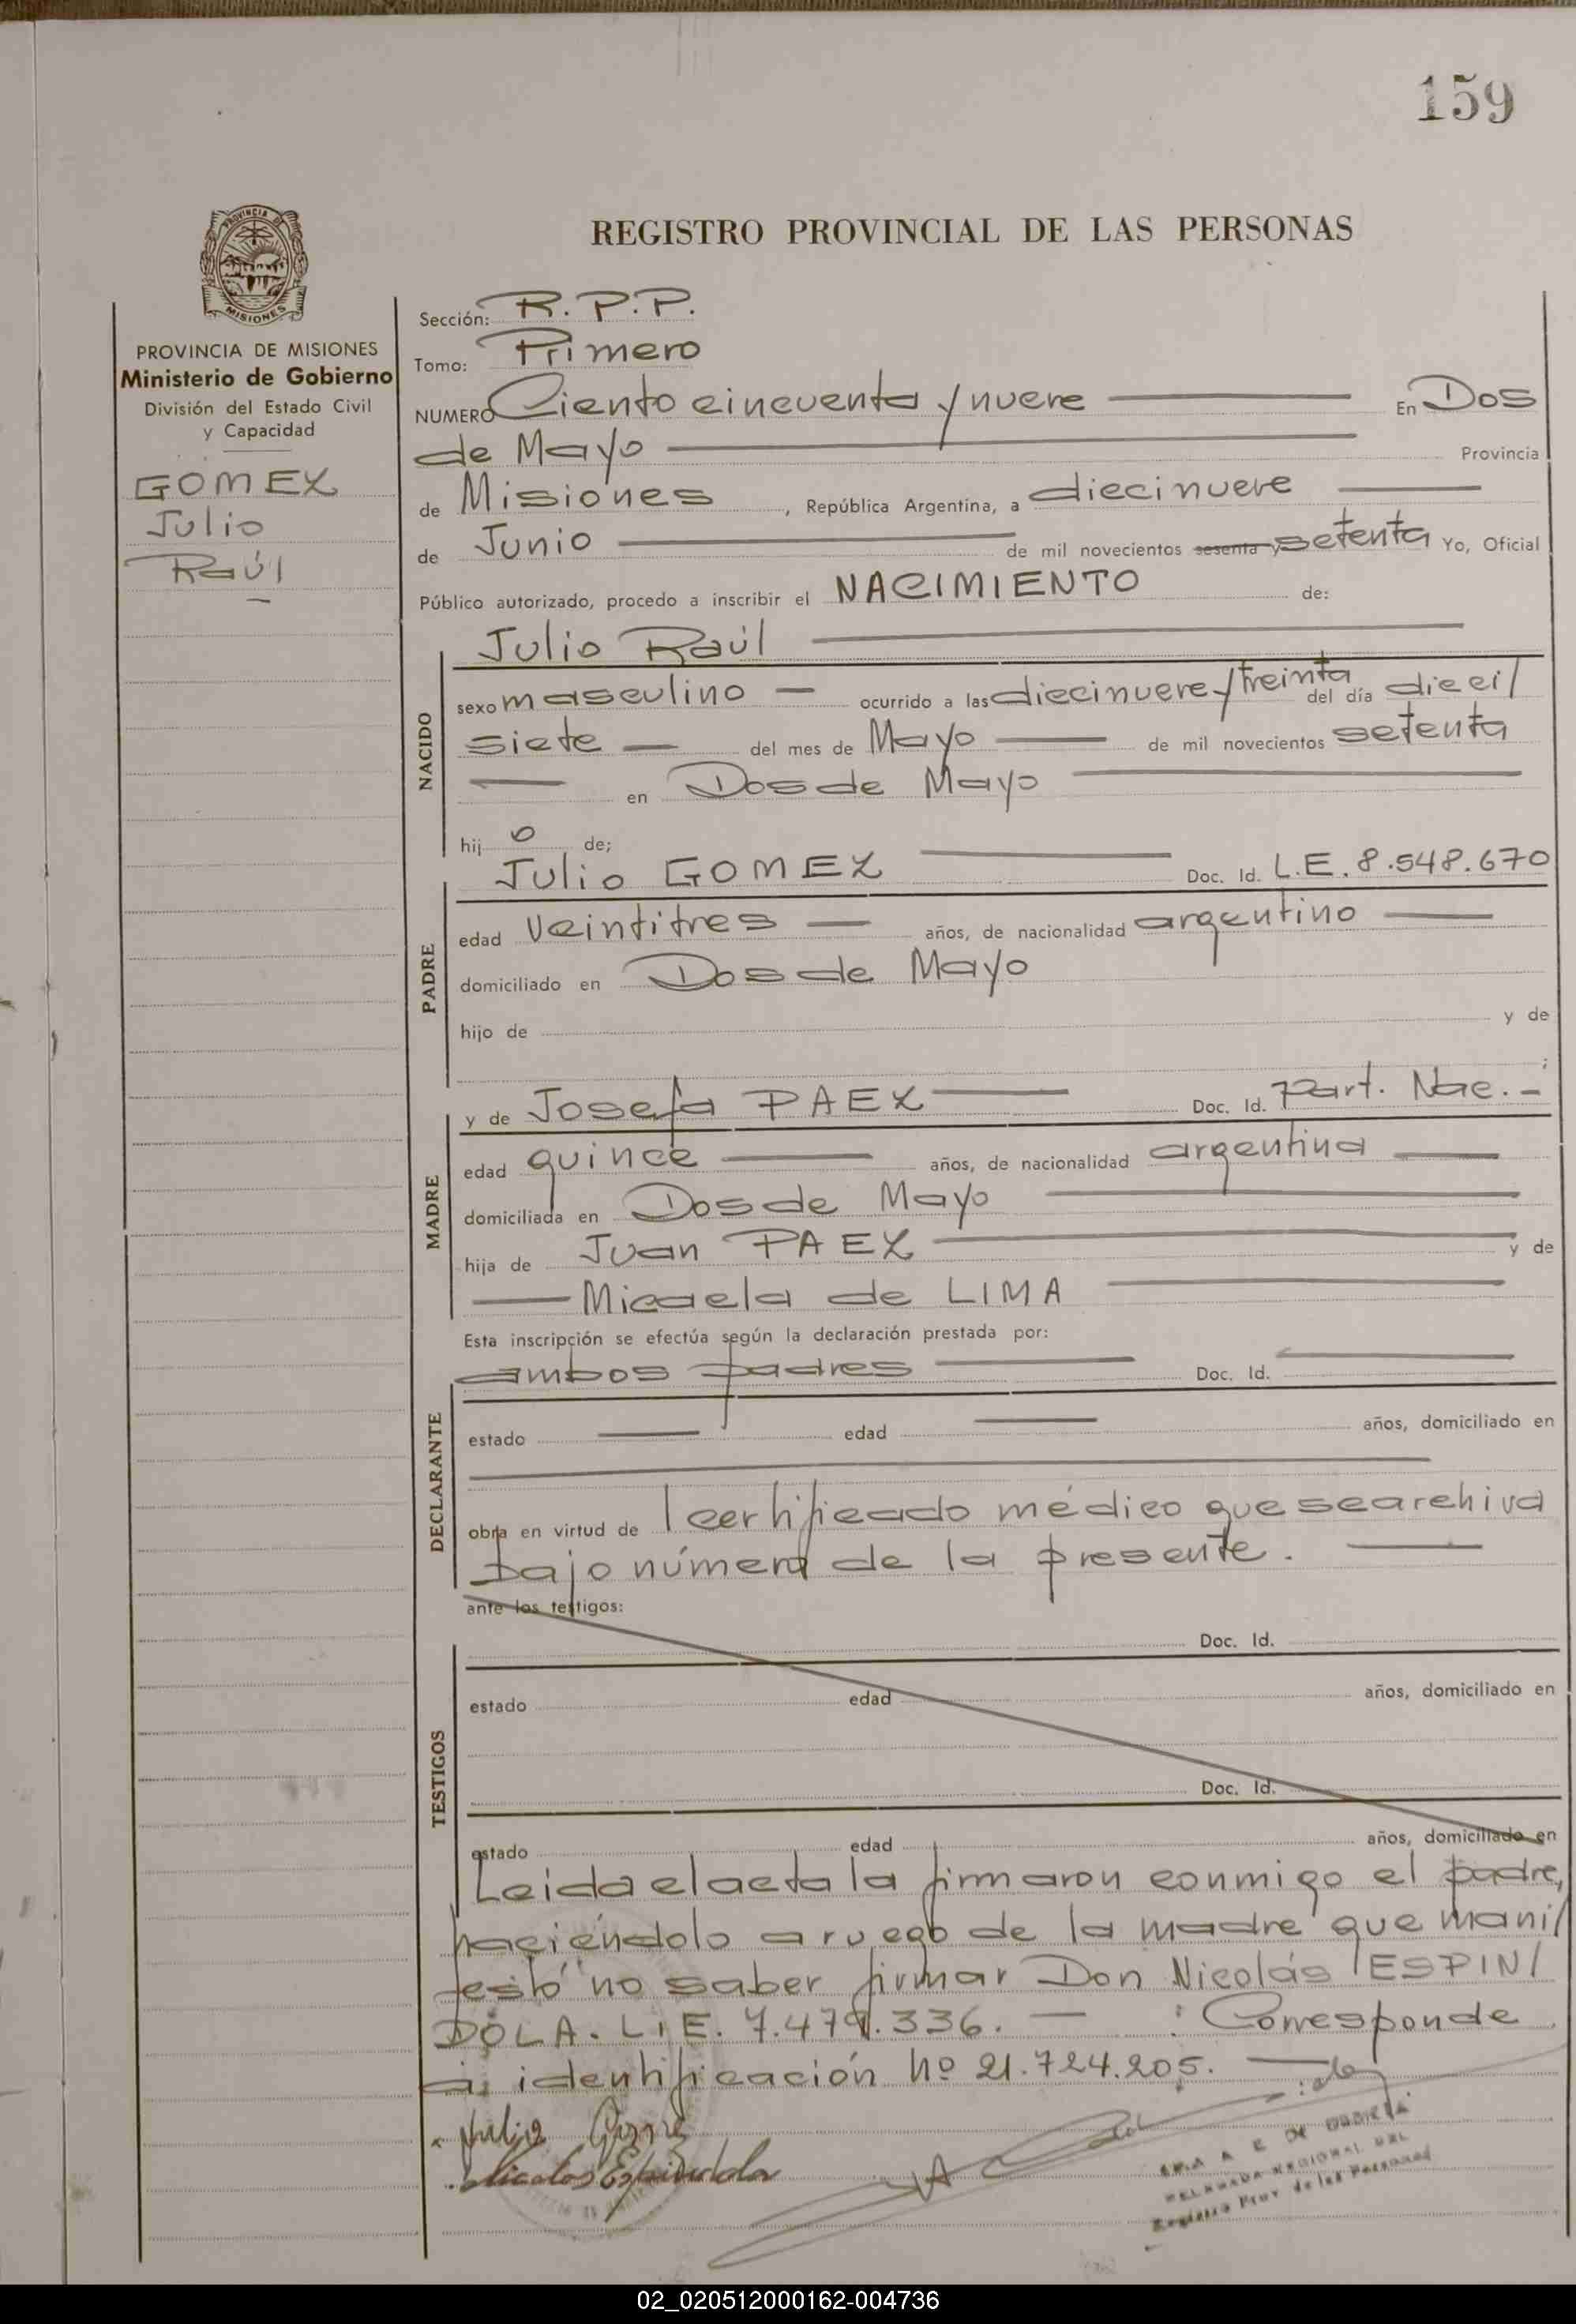 159
REGISTRO PROVINCIAL DE LAS PERSONAS
PROVINCIA DE
MISIONES
PROVINCIA DE MISIONES
Ministerio de Gobierno
División del Estado Civil
y Capacidad
GOMEZ
Julio
Raúl
Sección: R.P.P.
Tomo: Primero
NUMERO Ciento cincuenta y nueve En Dos
de Mayo Provincia
de Misiones, República Argentina, a diecinueve
de Junio de mil novecientos sesenta y setenta Yo, Oficial
Público autorizado, procedo a inscribir el NACIMIENTO de:
Julio Raúl
NACIDO
sexo masculino — ocurrido a las diecinueve y treinta del día dieci/
siete — del mes de Mayo — de mil novecientos setenta
— en Dos de Mayo
hij o de;
PADRE
Julio GOMEZ Doc. Id. L.E. 8.548.670
edad veintitres — años, de nacionalidad argentino —
domiciliado en Dos de Mayo
hijo de y de
;
MADRE
y de Josefa PAEZ Doc. Id. Part. Nac. -
edad quince — años, de nacionalidad argentina —
domiciliada en Dos de Mayo
hija de Juan PAEZ y de
— Micaela de LIMA
Esta inscripción se efectúa según la declaración prestada por:
DECLARANTE
ambos padres — Doc. Id. —
estado — edad — años, domiciliado en
obra en virtud de l certificado médico que se archiva
bajo número de la presente. —
ante los testigos:
TESTIGOS
Doc. Id.
estado edad años, domiciliado en
Doc. Id.
estado edad años, domiciliado en
Leida el acta la firmaron conmigo el padre,
haciéndolo a ruego de la madre que mani/
festó "no saber firmar Don Nicolás ESPIN/
DOLA. L.E. 7.479.336. — : Corresponde
a: identificación nº 21.724.205. —
Julio Gomez
Nicolas Espindola
DELEGADA REGIONAL DEL
Registro Prov de las Personas
02_020512000162-004736